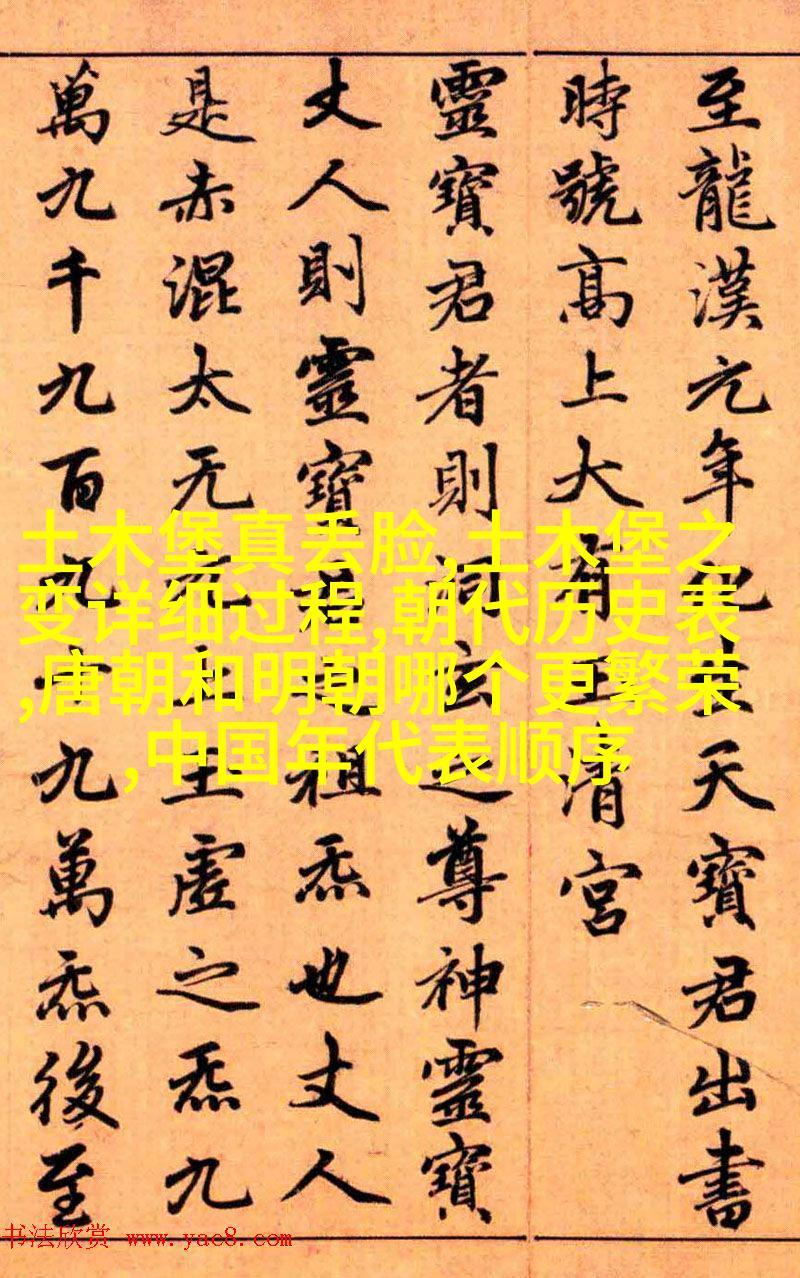 至龍漢元年化生天寶君出書
時號高上大有玉清宮
靈寶君者則洞玄之尊神靈寶
丈人則靈寶君之祖炁也丈人
是赤混太无元上玉虛之炁九
萬九千九百九十九萬炁後至
土木堡真丢脸,土木堡之
变详细过程,朝代历史表
,唐朝和明朝哪个更繁荣
,中国年代表顺序
书法欣赏 www.yac8.com